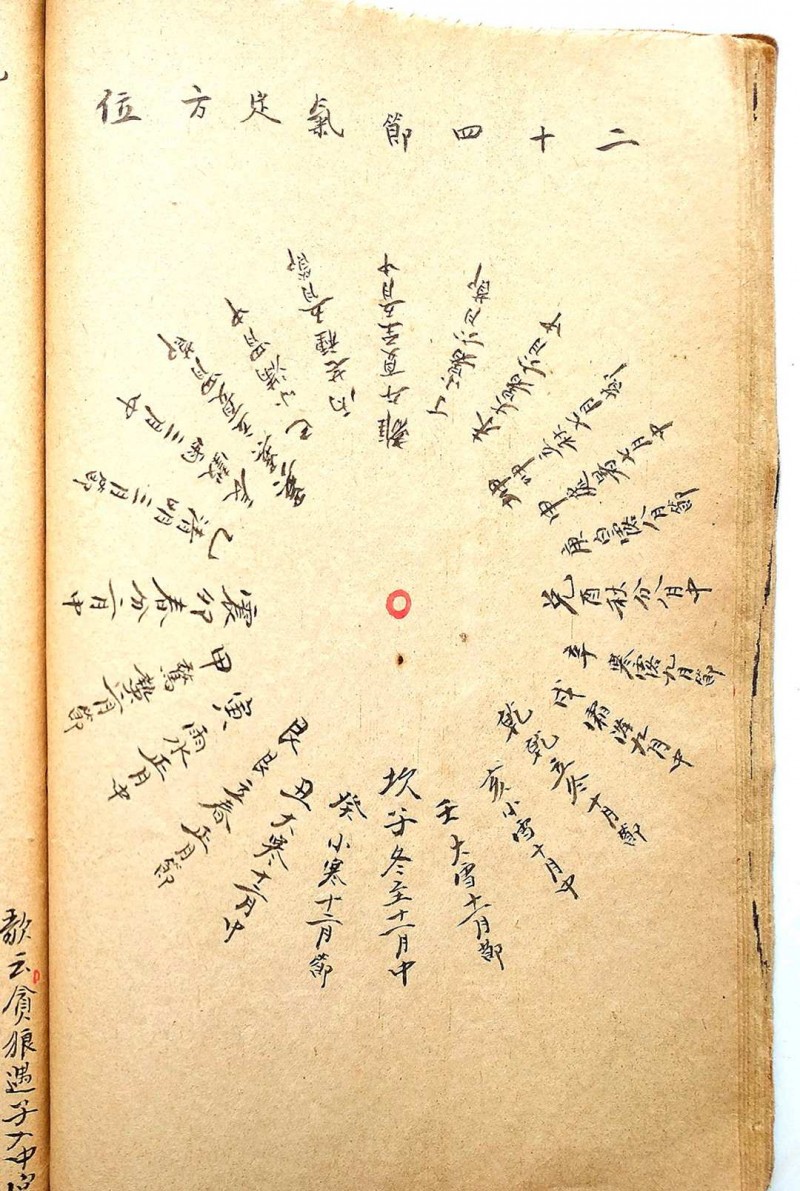 二十四節氣定方位
坎子冬至十一月中
癸小寒十二月節
丑大寒十二月中
艮艮立春正月節
寅雨水正月中
甲驚蟄二月節
震卯春分二月中
乙清明三月節
辰穀雨三月中
巽巽立夏四月節
巳小滿四月中
丙芒種五月節
離午夏至五月中
丁小暑六月節
未大暑六月中
坤坤立秋七月節
申處暑七月中
庚白露八月節
兌酉秋分八月中
辛寒露九月節
戌霜降九月中
乾乾立冬十月節
亥小雪十月中
壬大雪十一月節
歌云貪狼遇子大中